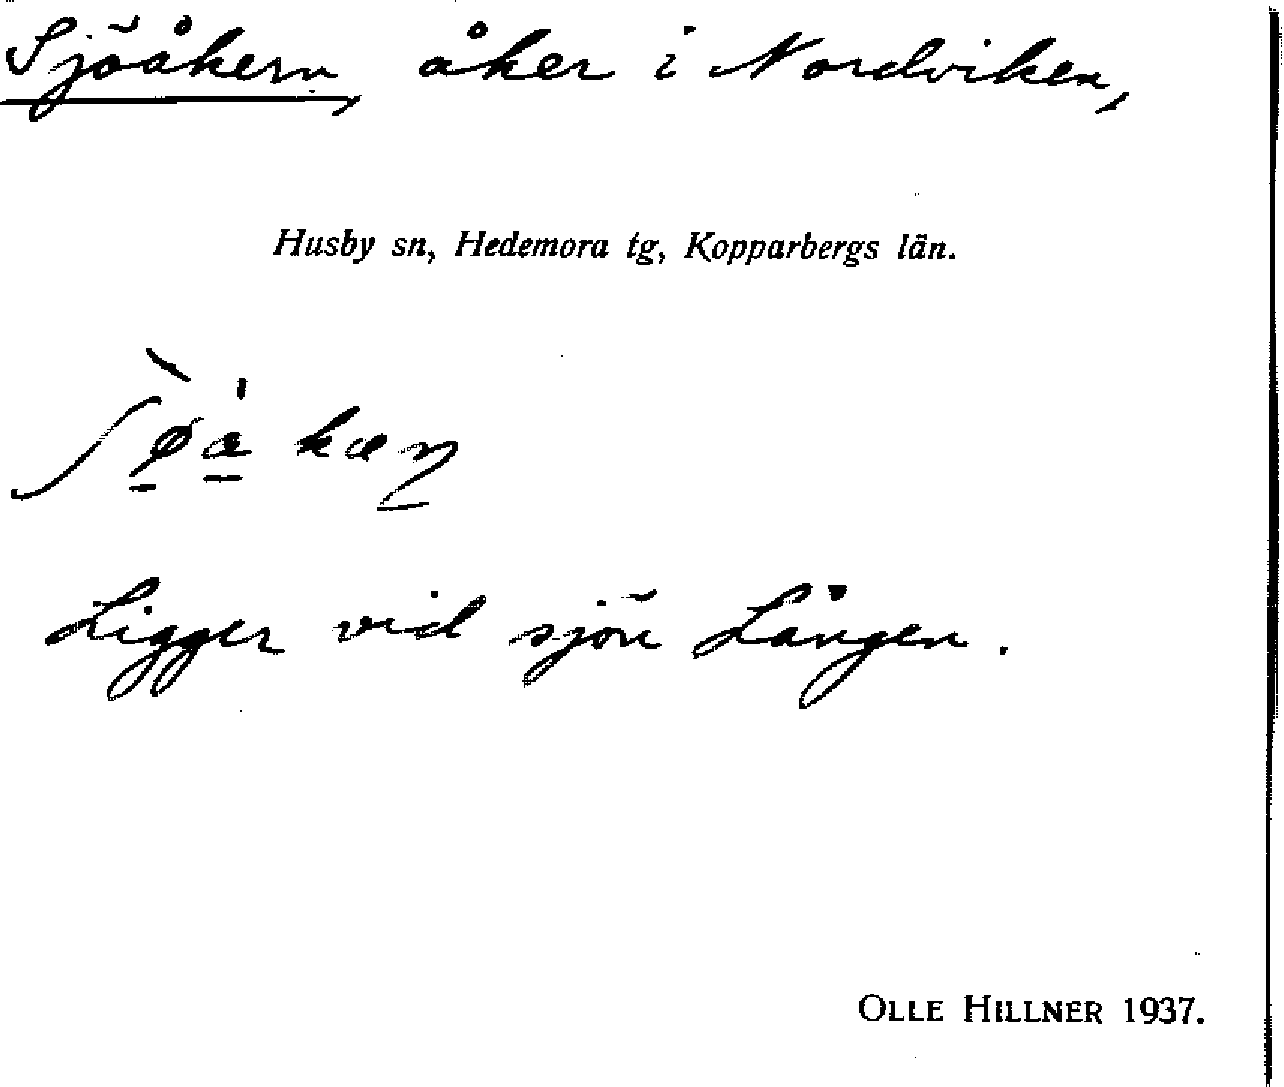 Sjöåkern, åker i Nordviken,
Husby sn, Hedemora tg, Kopparbergs län.
Ligger vid sjön Lången.
OLLE HILLNER 1937.